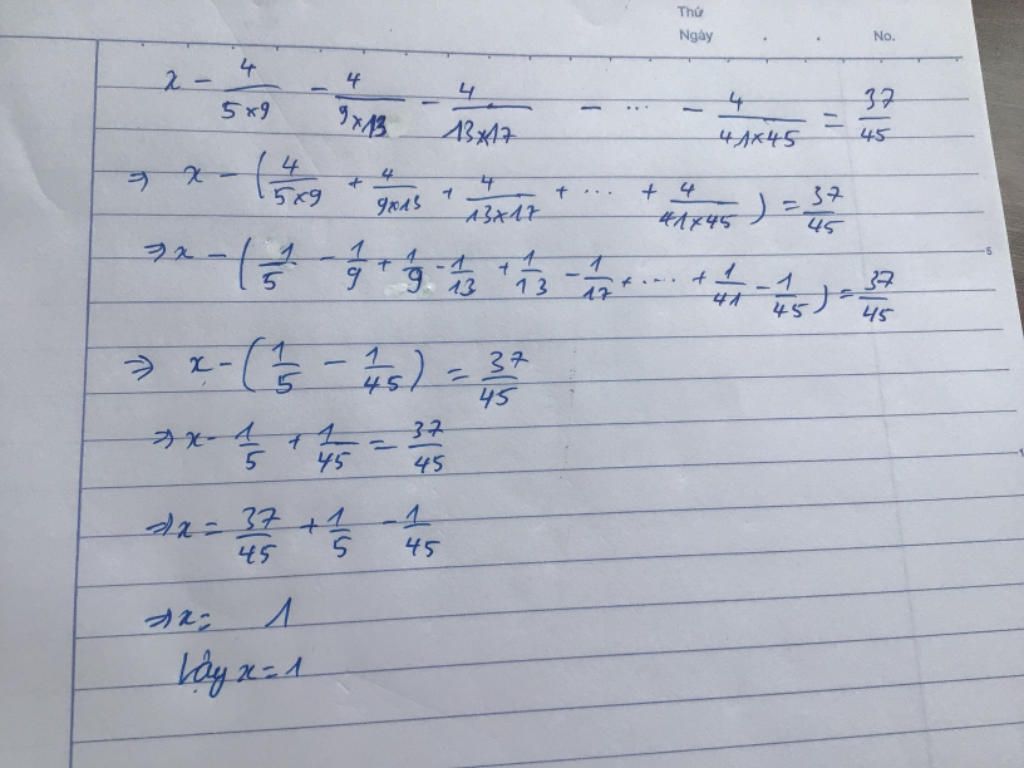 Thứ
Ngày . . No.
x - 4/(5×9) - 4/(9×13) - 4/(13×17) - ... - 4/(41×45) = 37/45
⇒ x - (4/(5×9) + 4/(9×13) + 4/(13×17) + ... + 4/(41×45)) = 37/45
⇒ x - (1/5 - 1/9 + 1/9 - 1/13 + 1/13 - 1/17 + ... + 1/41 - 1/45) = 37/45
5
⇒ x - (1/5 - 1/45) = 37/45
⇒ x - 1/5 + 1/45 = 37/45
⇒ x = 37/45 + 1/5 - 1/45
⇒ x = 1
Vậy x = 1